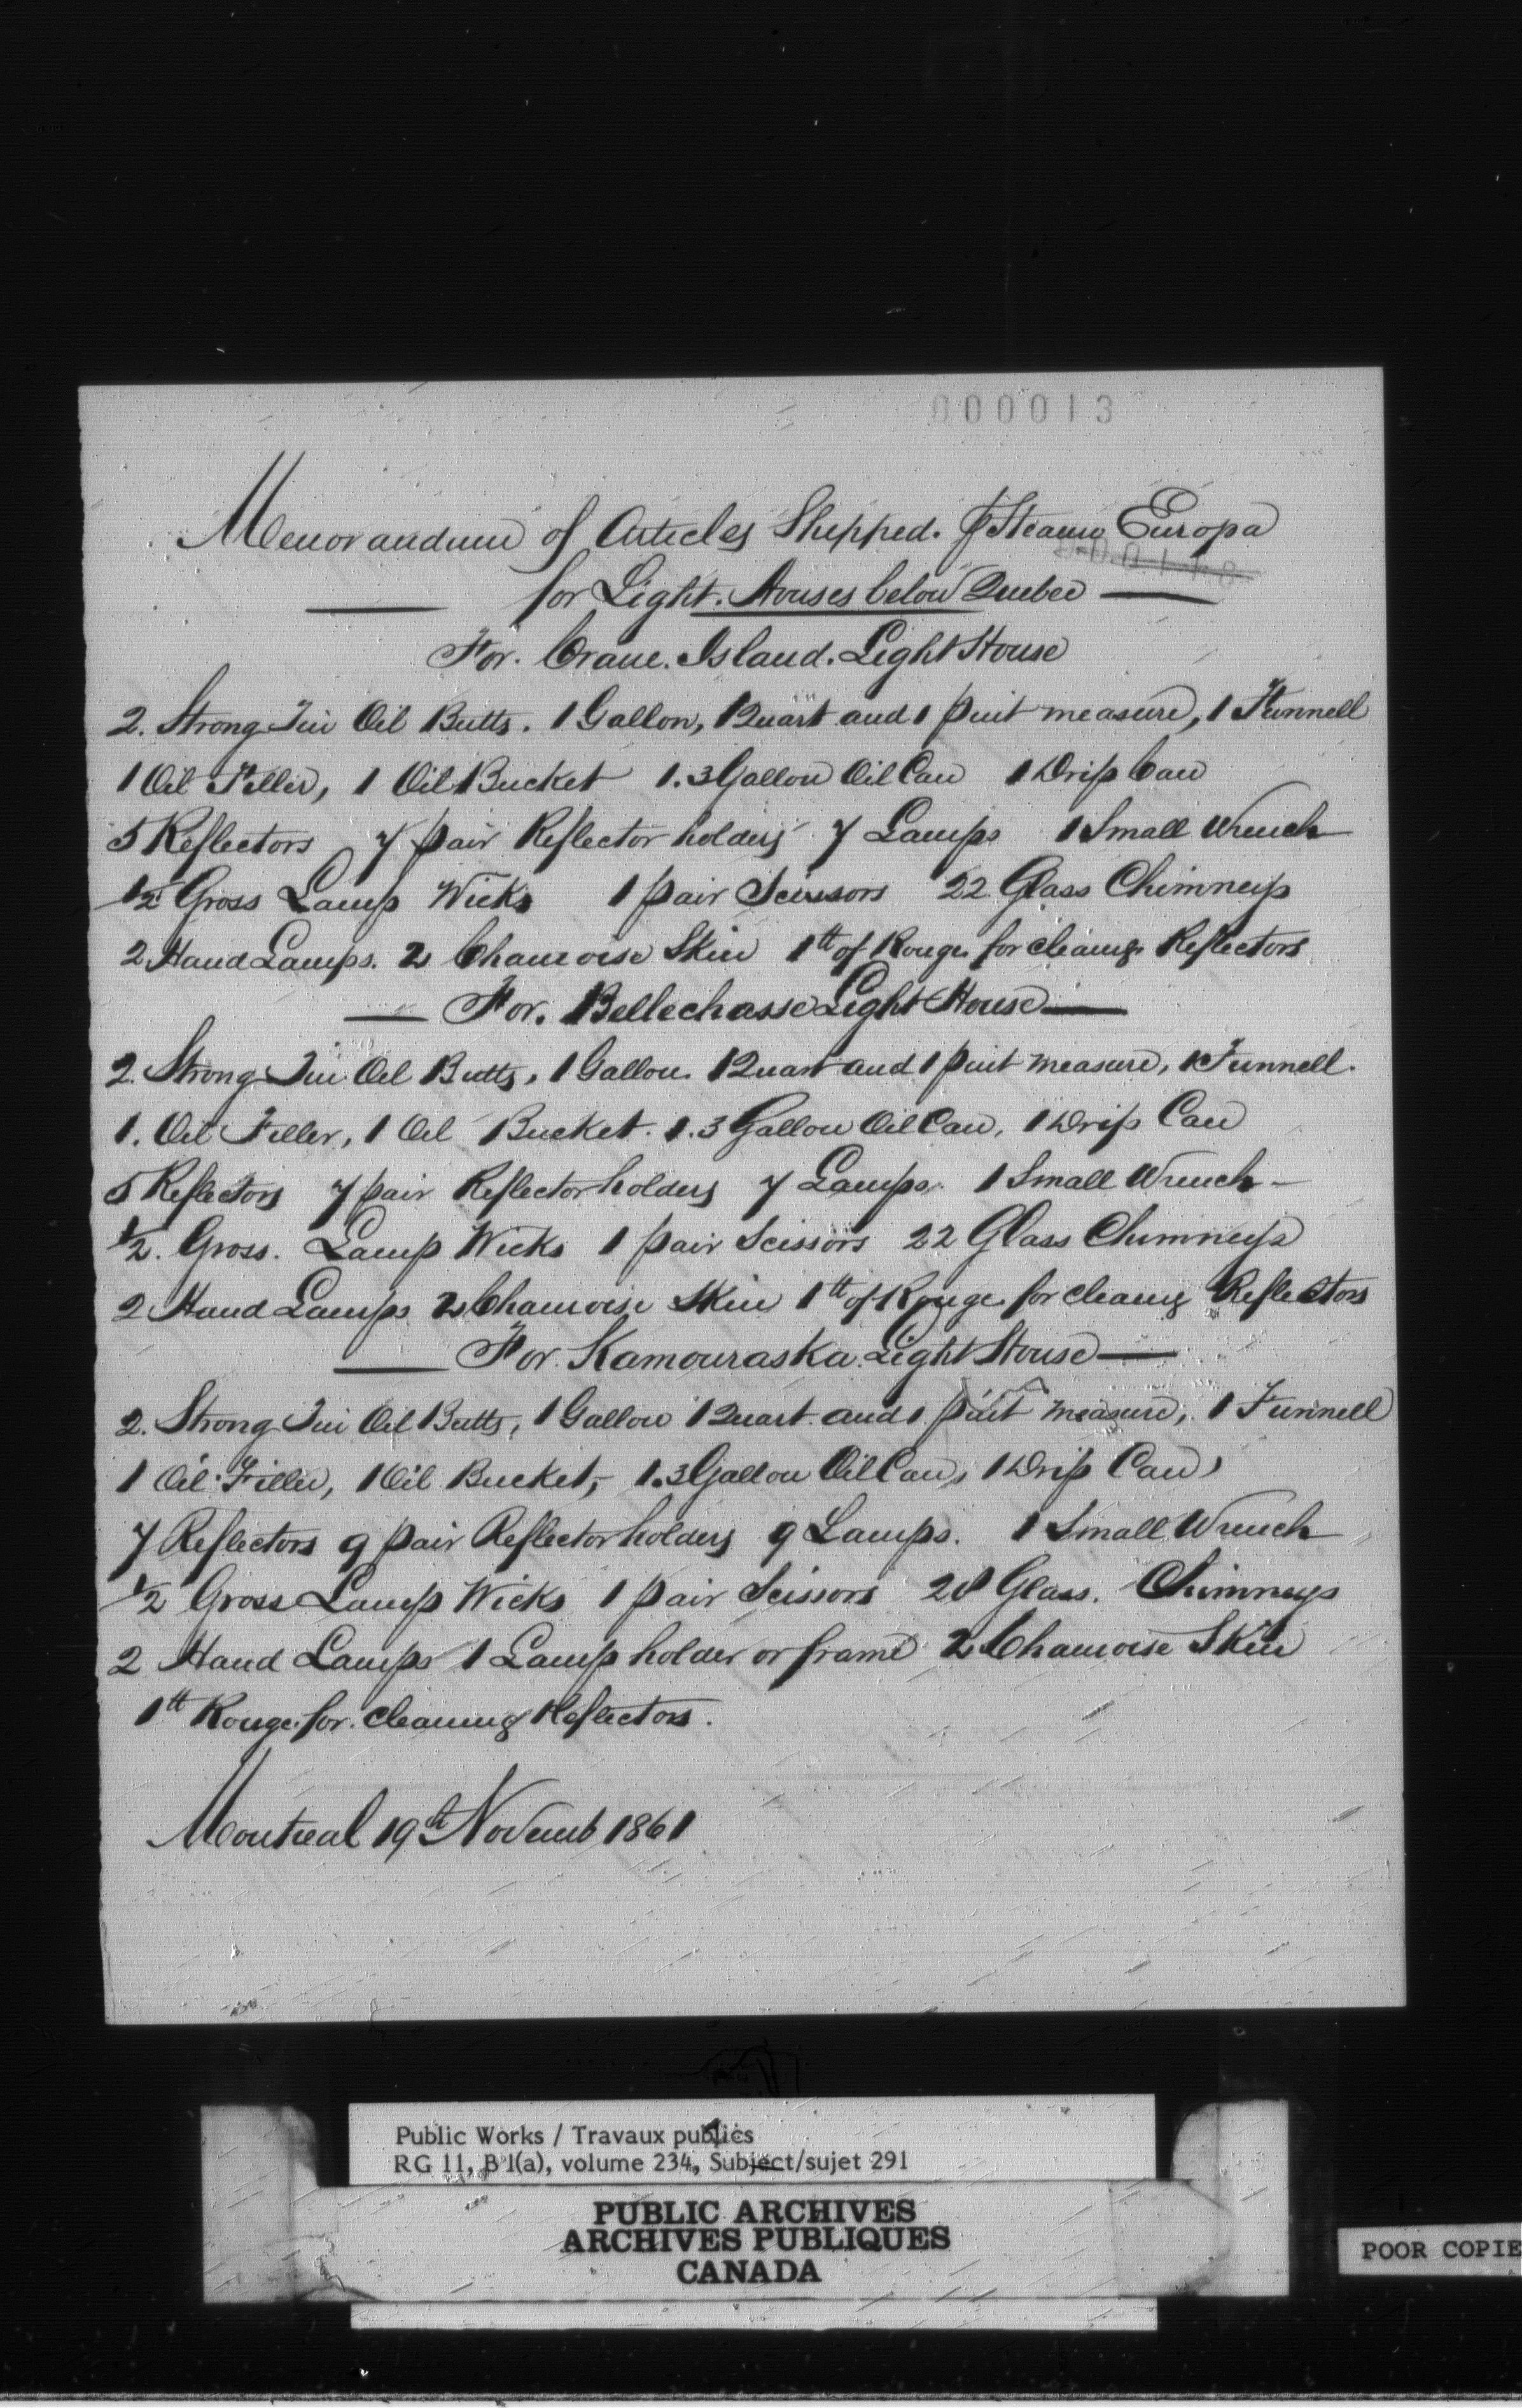 000013
Memorandum of Articles Shipped. ⅌ Steamr Europa
for Light. Houses below Quebec
For. Crane. Island. Light House
2. Strong Tin Oil Butts. 1 Gallon, 1 Quart and 1 pint measure, 1 Funnell
1 Oil Filler, 1 Oil Bucket 1.3 Gallon Oil Can 1 Drip Can
5 Reflectors 7 pair Reflector holders 7 Lamps 1 Small Wrench
1/2 Gross Lamp Wicks 1 pair Scissors 22 Glass Chimneys
2 Hand Lamps. 2 Chamoise Skin 1 lb of Rouge for cleaing Reflectors
For. Bellechasse Light House
2. Strong Tin Oil Butts, 1 Gallon. 1 Quart and 1 pint measure, 1 Funnell.
1. Oil Filler, 1 Oil Bucket. 1.3 Gallon Oil Can, 1 Drip Can
5 Reflectors 7 pair Reflector holders 7 Lamps. 1 Small Wrench
1/2. Gross. Lamp Wicks 1 pair Scissors 22 Glass Chimneys
2 Hand Lamps 2 Chamoise Skin 1 lb of Rouge for cleaing Reflectors
For. Kamouraska. Light House
2. Strong Tin Oil Butts, 1 Gallon 1 Quart. and 1. pint measure, 1 Funnell
1 Oil Filler, 1 Oil Bucket, 1.3 Gallon Oil Can, 1 Drip Can,
7 Reflectors 9 pair Reflector holders 9 Lamps. 1 Small Wrench
1/2 Gross Lamp Wicks 1 pair Scissors 28 Glass. Chimneys
2 Hand Lamps 1 Lamp holder or frame 2 Chamoise Skin
1 lb Rouge. for. cleaning Reflectors.
Montreal 19th Novemb 1861
Public Works / Travaux publics
RG 11, B 1(a), volume 234, Subject/sujet 291
PUBLIC ARCHIVES
ARCHIVES PUBLIQUES
CANADA
POOR COPIE